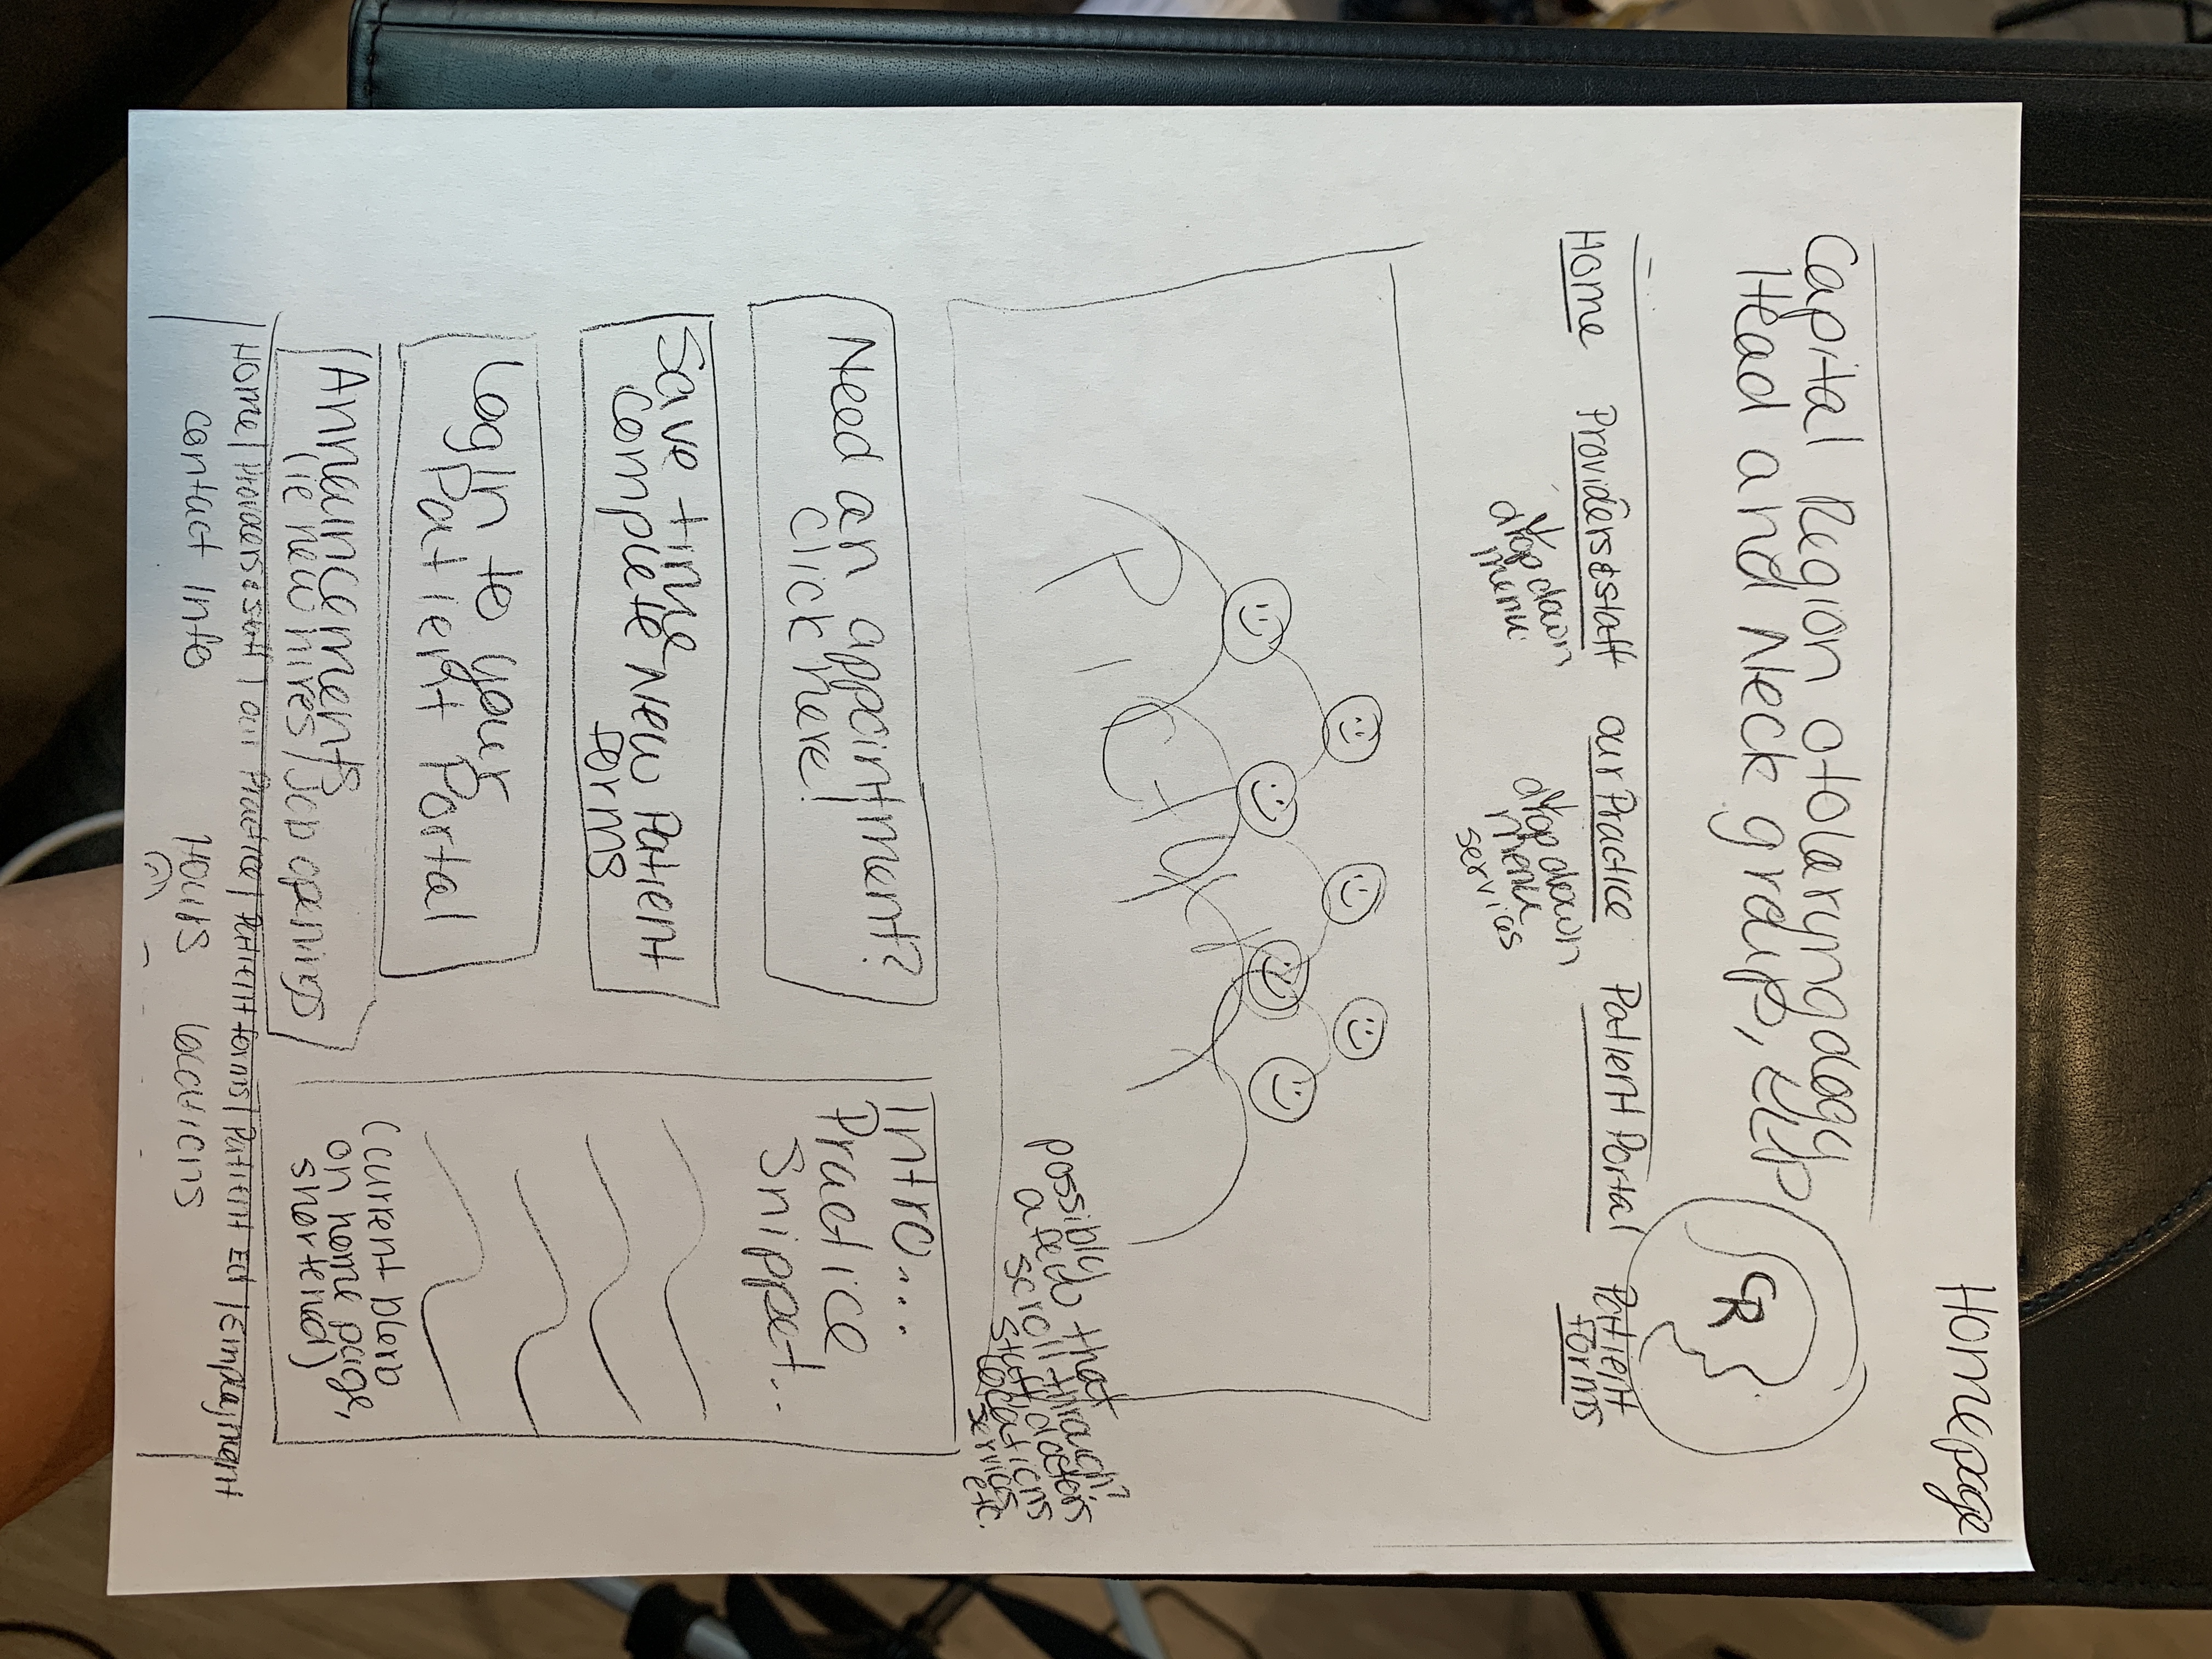 Homepage
Capital Region otolaryngology
Head and Neck group, LLP
CR
Home Providers & staff our Practice Patient Portal Patient
forms
drop down
menu
drop down
menu
services
PICTURE
possibly that
a feed scroll-through?
staff doctors
locations
services
etc.
Need an appointment?
click here!
Save time
complete New Patient
forms
Login to your
Patient Portal
Announcements
(ie new hires/Job openings
Intro....
Practice
Snippet...
(current blurb
on home page,
shortend)
Home | Providers & staff | our Practice | Patient forms | Patient Ed | Employment
contact info Hours locations